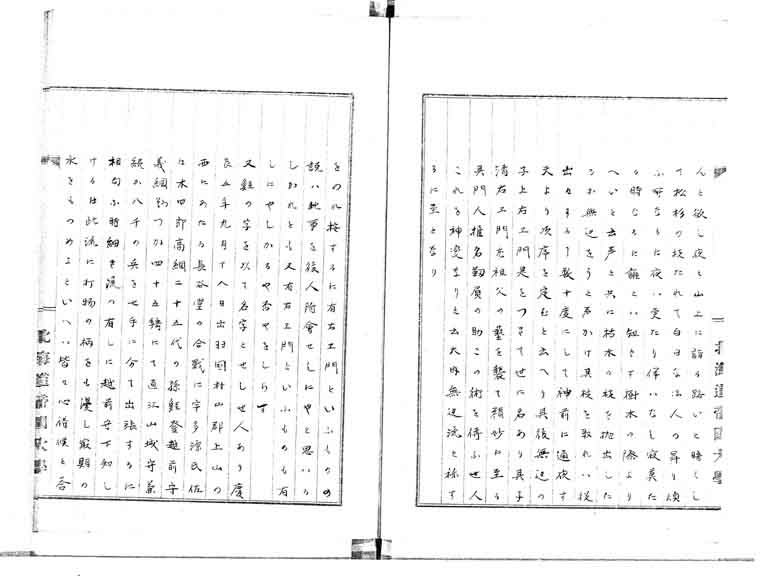 んと欲し夜と山上に詣る路いと暗くし
て松杉の枝たれて白日な法人の昇り煩
ふ所なるに夜い受たり保いなし寂莫た
る時なるに誰とい知らす樹木の際より
へいと出声と共に枯木の枝を抛出した
るか無辺をうと声かけ其枝を取れい従
出々するて数十度にして神前に通夜す
夫より次序を定むと云へり其後無辺の
子上右エ門是をつきて世に名あり其子
清右エ門尤祖父の藝を襲て精妙に至る
其門人椎名靱屓の助この術を得ふ世人
これを神変なりと云大内無辺流と称す
るに至となり
をつれ按するに有右エ門といふものゝ
説い此事を後人附會せしにやと思いる
しかれとも又有右エ門といふものも有
しにやしかるや否やをしらす
又鮭の字を以て名字とせし世人あり慶
長五年九月十八日出羽国村山郡上山の
西にあたる長谷堂の合戦に宇多源氏佐
々木四郎高綱二十五代の孫鮭登越前守
義綱 つか四十五騎にて直江山城守兼
続か八千の兵をせ手に分て出張するに
相向ふ時細き流の有しに越前守下知し
けるは此流に打物の柄をも漫し最期の
水をものめよといへい皆々心得候と答